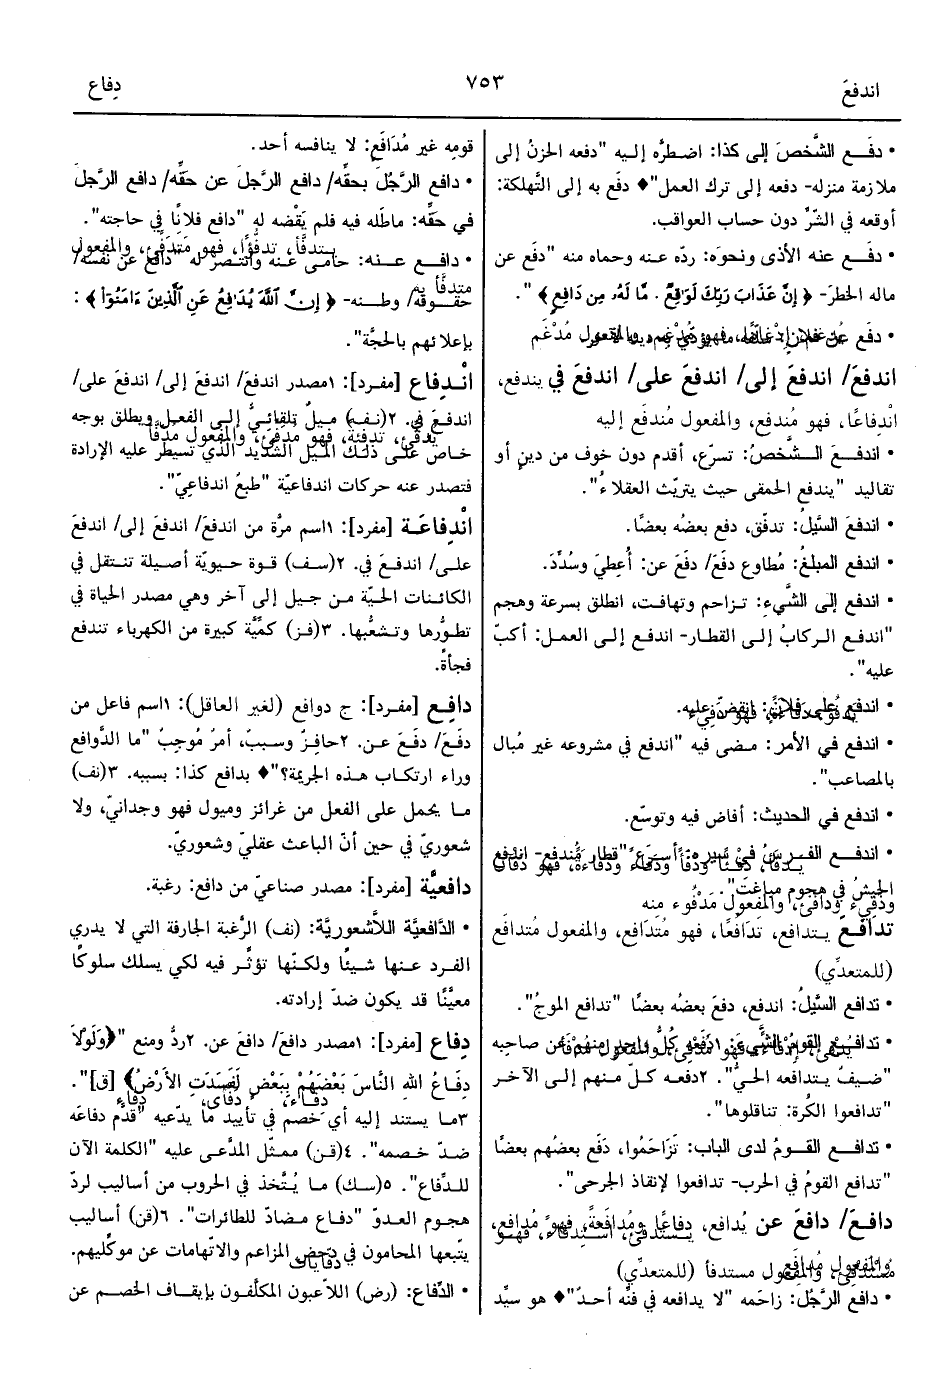 اندفعَ
٧٥٣
دِفاع
• دفَـع الشَّخصَ إلى كذا: اضطرَّه إليه "دفعه الحزنُ إلى
ملازمة منزله- دفعه إلى ترك العمل"♦ دفَع به إلى التَّهلكة:
أوقعه في الشرِّ دون حساب العواقب.
• دفَـع عنه الأذى ونحوَه: ردّه عنه وحماه منه "دفَع عن
ماله الخطرَ- ﴿ إِنَّ عَذَابَ رَبِّكَ لَوَاقِعٌ . مَّا لَهُ مِن دَافِعٍ ﴾ ".
• دفَع عن
اندفعَ/ اندفعَ إلى/ اندفعَ على/ اندفعَ في يندفع،
انْدِفاعًا، فهو مُندفِع، والمفعول مُندفَع إليه
• اندفـعَ الـشَّخصُ: تسرّع، أقدم دون خوف من دينٍ أو
تقاليد "يندفع الحمقى حيث يتريّث العقلاءُ".
• اندفعَ السَّيلُ: تدفّق، دفع بعضُه بعضًا.
• اندفع المبلغُ: مُطاوع دفَعَ/ دفَعَ عن: أُعطِيَ وسُدِّدَ.
• اندفع إلى الشَّيءِ: تزاحم وتهافت، انطلق بسرعة وهجم
"اندفع الركابُ إلى القطار- اندفع إلى العمل: أكبّ
عليه".
• اندفع على فلان: انقضّ عليه.
• اندفع في الأمر: مضى فيه "اندفع في مشروعه غير مُبال
بالمصاعب".
• اندفع في الحديث: أفاض فيه وتوسّع.
• اندفـع الفرسُ في سيره: أسرع "قطار مُندفع- اندفع
الجيشُ في هجوم مباغت".
ودَفيء ودافئ، والمفعول مَدْفُوء منه
تدافَـعَ يتدافع، تدافُعًا، فهو مُتدافِع، والمفعول مُتدافَع
(للمتعدِّي)
• تدافع السَّيلُ: اندفع، دفعَ بعضُه بعضًا "تدافع الموجُ".
• تدافـع القومُ الشَّيءَ: ١دفَعه كلُّ واحد منهم عن صاحبِه
"ضيفٌ يتدافعه الحيُّ". ٢دفعه كلّ منهم إلى الآخر
"تدافعوا الكُرة: تناقلوها".
• تدافـع القـومُ لدى الباب: تَزَاحَمُوا، دَفَع بعضُهم بعضًا
"تدافع القومُ في الحرب- تدافعوا لإنقاذ الجرحى".
دافعَ/ دافعَ عن يُدافع، دِفاعًا ومُدافَعةً، فهو مُدافِع،
والمفعول مُدافَع (للمتعدِّي)
• دافع الرَّجُلَ: زاحَمه "لا يدافعه في فنِّه أحدٌ"♦ هو سيِّد
قومِه غير مُدَافَعٍ: لا ينافسه أحد.
• دافع الرَّجُلَ بحقِّه/ دافع الرَّجلَ عن حقِّه/ دافع الرَّجلَ
في حقِّه: ماطَله فيه فلم يَقْضه له "دافع فلانًا في حاجته".
• دافـع عـنه: حامى عنه وانتصر له "دافع عن نفسه/
حقوقه/ وطنه- ﴿ إِنَّ اللَّهَ يُدَافِعُ عَنِ الَّذِينَ ءَامَنُوا ﴾ :
بإعلائهم بالحجَّة".
انْـدِفاع [مفرد]: ١مصدر اندفعَ/ اندفعَ إلى/ اندفعَ على/
اندفعَ في. ٢(نف) ميلٌ تلقائيٌّ إلى الفعل ويطلق بوجه
خاص على ذلك الميل الشديد الذي تسيطر عليه الإرادة
فتصدر عنه حركات اندفاعيّة "طبعٌ اندفاعيّ".
انْدِفاعَـة [مفرد]: ١اسم مرَّة من اندفعَ/ اندفعَ إلى/ اندفعَ
على/ اندفعَ في. ٢(سف) قوة حيويّة أصيلة تنتقل في
الكائنات الحيّة من جيل إلى آخر وهي مصدر الحياة في
تطوُّرها وتشعُّبها. ٣(فز) كمّيَّة كبيرة من الكهرباء تندفع
فجأة.
دافِـع [مفرد]: ج دوافع (لغير العاقل): ١اسم فاعل من
دفَعَ/ دفَعَ عن. ٢حافِز وسبب، أمرٌ مُوجِبٌ "ما الدَّوافع
وراء ارتكاب هذه الجريمة؟"♦ بدافع كذا: بسببه. ٣(نف)
ما يحمل على الفعل من غرائز وميول فهو وجدانيّ، ولا
شعوريّ في حين أنّ الباعث عقليّ وشعوريّ.
دافعيَّة [مفرد]: مصدر صناعيّ من دافع: رغبة.
• الدَّافعيّة اللاَّشعوريَّة: (نف) الرَّغبة الجارفة التي لا يدري
الفرد عنها شيئًا ولكنّها تؤثِّر فيه لكي يسلك سلوكًا
معيَّنًا قد يكون ضدّ إرادته.
دِفاع [مفرد]: ١مصدر دافعَ/ دافعَ عن. ٢ردٌّ ومنع "﴿وَلَوْلاَ
دِفَاعُ اللهِ النَّاسَ بَعْضَهُمْ بِبَعْضٍ لَفَسَدَتِ الأَرْضُ﴾ [ق]".
٣ما يستند إليه أي خصم في تأييد ما يدّعيه "قدَّم دفاعَه
ضدّ خصمه". ٤(قن) ممثّل المدَّعى عليه "الكلمة الآن
للدِّفاع". ٥(سك) ما يُتَّخذ في الحروب من أساليب لردّ
هجوم العدوّ "دفاع مضادّ للطائرات". ٦(قن) أساليب
يتّبعها المحامون في دحض المزاعم والاتّهامات عن موكِّليهم.
• الدِّفاع: (رض) اللاّعبون المكلَّفون بإيقاف الخصم عن